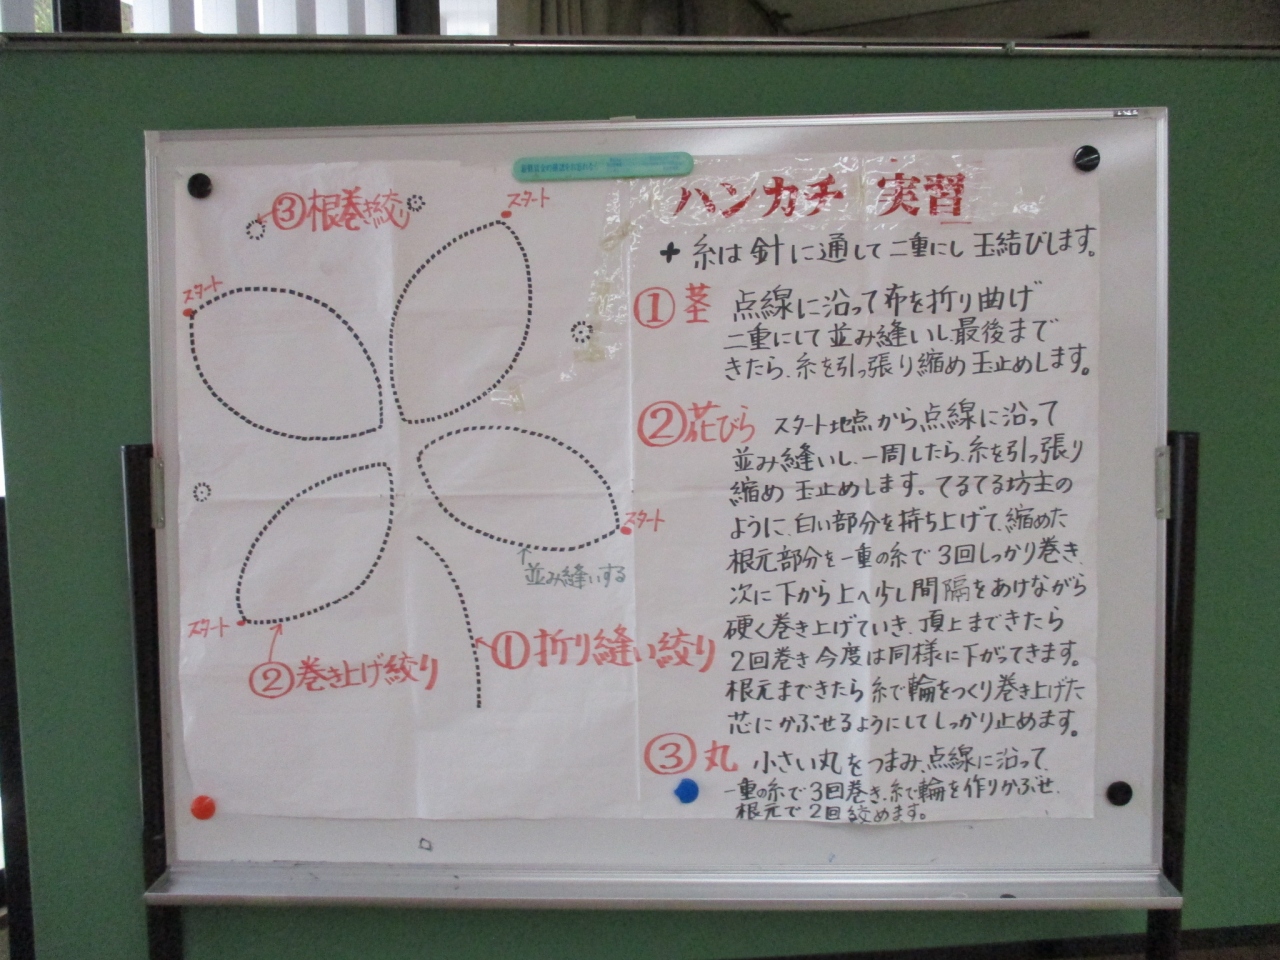 ③根巻き絞
スタート
スタート
スタート
並み縫いする
スタート
②巻き上げ絞り
①折り縫い絞り
ハンカチ 実習
+ 糸は針に通して二重にし玉結びします。
①茎 点線に沿って布を折り曲げ
二重にして並み縫いし、最後まで
きたら、糸を引っ張り縮め玉止めします。
②花びら スタート地点から、点線に沿って
並み縫いし、一周したら、糸を引っ張り
縮め玉止めします。てるてる坊主の
ように、白い部分を持ち上げて、縮めた
根元部分を一重の糸で3回しっかり巻き、
次に下から上へ少し間隔をあけながら
硬く巻き上げていき、頂上まできたら
2回巻き今度は同様に下がってきます。
根元まできたら糸で輪をつくり巻き上げた
芯にかぶせるようにしてしっかり止めます。
③丸 小さい丸をつまみ、点線に沿って、
一重の糸で3回巻き、糸で輪を作りかぶせ、
根元で2回絞めます。